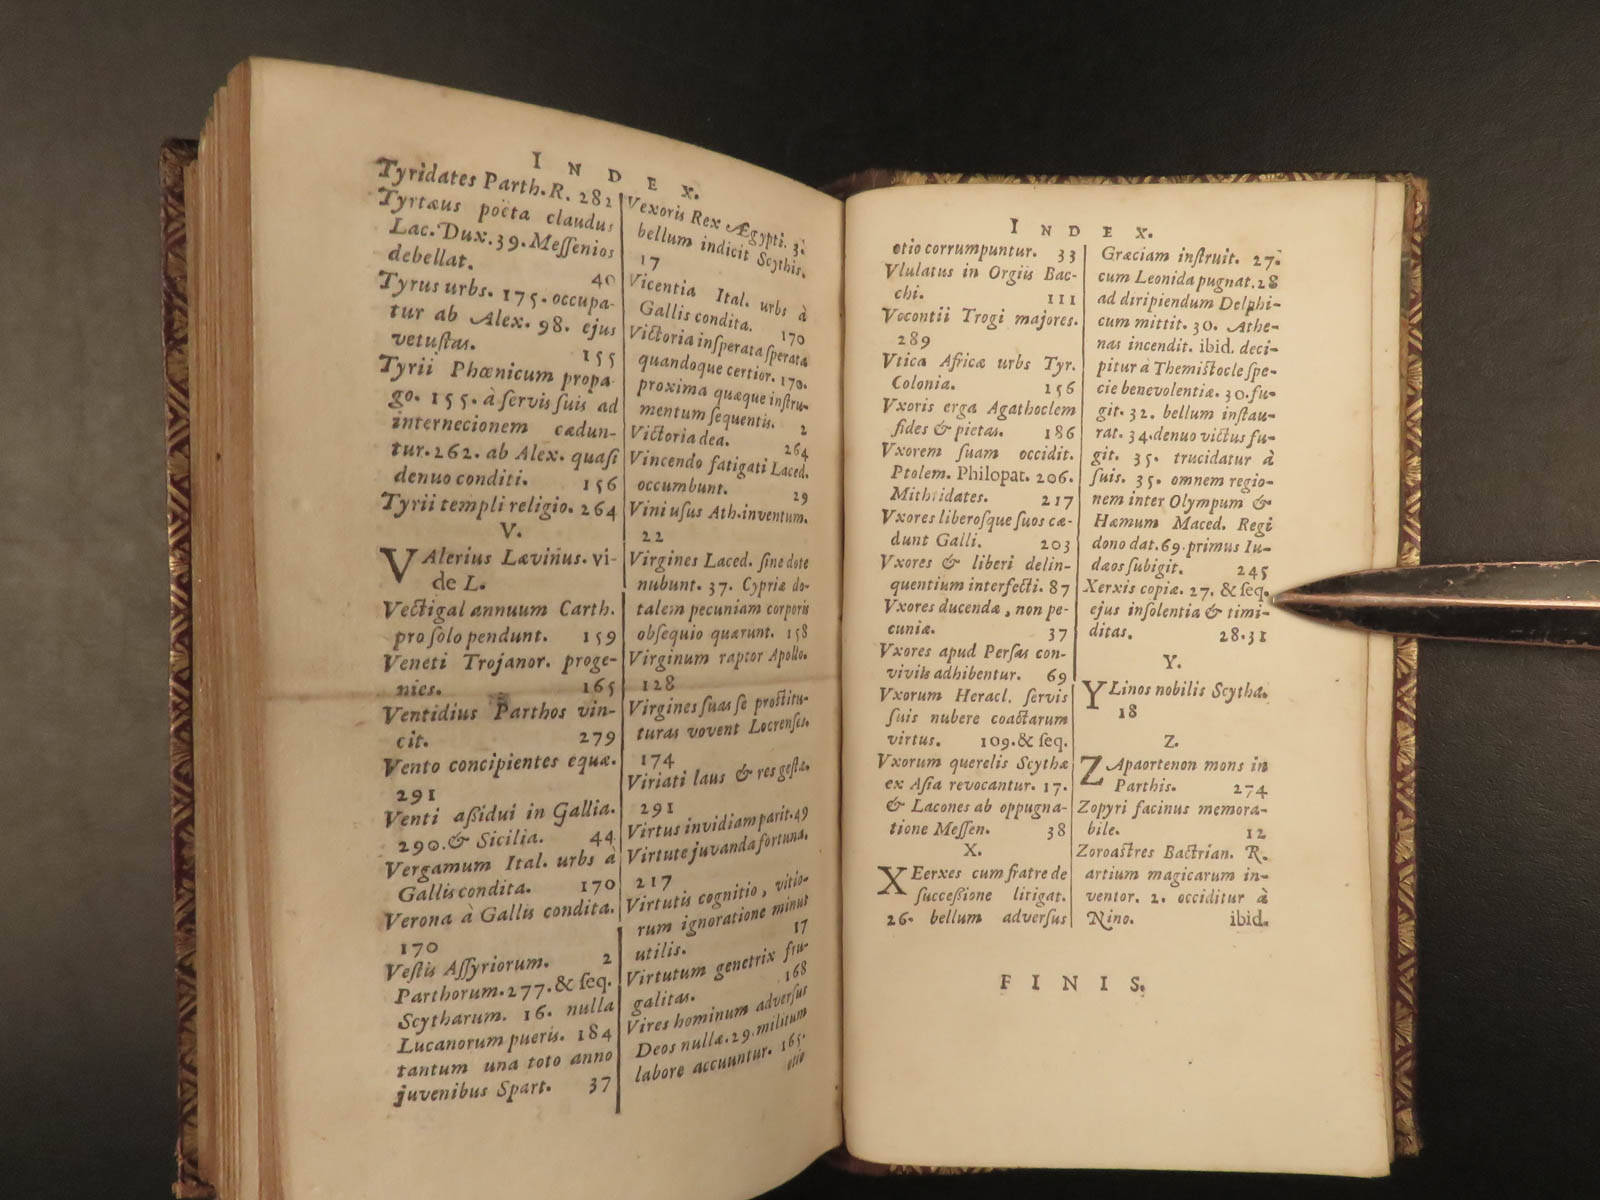 INDEX.
Tyridates Parth. R. 282
Tyrtæus poëta claudus
Lac. Dux. 39. Meſſenios
debellat. 40
Tyrus urbs. 175. occupa-
tur ab Alex. 98. ejus
vetuſtas. 155
Tyrii Phœnicum propa-
go. 155. à ſervis ſuis ad
internecionem cædun-
tur. 262. ab Alex. quaſi
denuo conditi. 156
Tyrii templi religio. 264
V.
VAlerius Lævinus. vi-
de L.
Vectigal annuum Carth.
pro ſolo pendunt. 159
Veneti Trojanor. proge-
nies. 165
Ventidius Parthos vin-
cit. 279
Vento concipientes equæ.
291
Venti aßidui in Gallia.
290. & Sicilia. 44
Vergamum Ital. urbs à
Gallis condita. 170
Verona à Gallis condita.
170
Veſtis Aſſyriorum. 2
Parthorum. 277. & ſeq.
Scytharum. 16. nulla
Lucanorum pueris. 184
tantum una toto anno
juvenibus Spart. 37
Vexoris Rex Ægypti. 3.
bellum indicit Scythis.
17
Vicentia Ital. urbs à
Gallis condita. 170
Victoria inſperata ſperata
quandoque certior. 170.
proxima quæque inſtru-
mentum ſequentis. 2
Victoria dea. 264
Vincendo fatigati Laced.
occumbunt. 29
Vini uſus Ath. inventum.
22
Virgines Laced. ſine dote
nubunt. 37. Cypriæ do-
talem pecuniam corporis
obſequio quærunt. 158
Virginum raptor Apollo.
128
Virgines ſuas ſe proſtitu-
turas vovent Locrenſes.
174
Viriati laus & res geſtæ.
291
Virtus invidiam parit. 49
Virtute juvanda fortuna.
217
Virtutis cognitio, vitio-
rum ignoratione minus
utilis. 17
Virtutum genetrix fru-
galitas. 168
Vires hominum adverſus
Deos nullæ. 29. militum
labore accuuntur. 165.
otio
INDEX.
otio corrumpuntur. 33
Vlulatus in Orgiis Bac-
chi. 111
Vocontii Trogi majores.
289
Vtica Africæ urbs Tyr.
Colonia. 156
Vxoris erga Agathoclem
fides & pietas. 186
Vxorem ſuam occidit.
Ptolem. Philopat. 206.
Mithridates. 217
Vxores liberoſque ſuos cæ-
dunt Galli. 203
Vxores & liberi delin-
quentium interfecti. 87
Vxores ducendæ, non pe-
cuniæ. 37
Vxores apud Perſas con-
viviis adhibentur. 69
Vxorum Heracl. ſervis
ſuis nubere coactarum
virtus. 109. & ſeq.
Vxorum querelis Scythæ
ex Aſia revocantur. 17.
& Lacones ab oppugna-
tione Meſſen. 38
X.
XEerxes cum fratre de
ſucceßione litigat.
26. bellum adverſus
Græciam inſtruit. 27.
cum Leonida pugnat. 28
ad diripiendum Delphi-
cum mittit. 30. Athe-
nas incendit. ibid. deci-
pitur à Themiſtocle ſpe-
cie benevolentiæ. 30. fu-
git. 32. bellum inſtau-
rat. 34. denuo victus fu-
git. 35. trucidatur à
ſuis. 35. omnem regio-
nem inter Olympum &
Hæmum Maced. Regi
dono dat. 69. primus Iu-
dæos ſubigit. 245
Xerxis copiæ. 27. & ſeq.
ejus inſolentia & timi-
ditas. 28. 31
Y.
YLinos nobilis Scytha.
18
Z.
ZApaortenon mons in
Parthis. 274
Zopyri facinus memora-
bile. 12
Zoroaſtres Bactrian. R.
artium magicarum in-
ventor. 2. occiditur à
Nino. ibid.
FINIS.